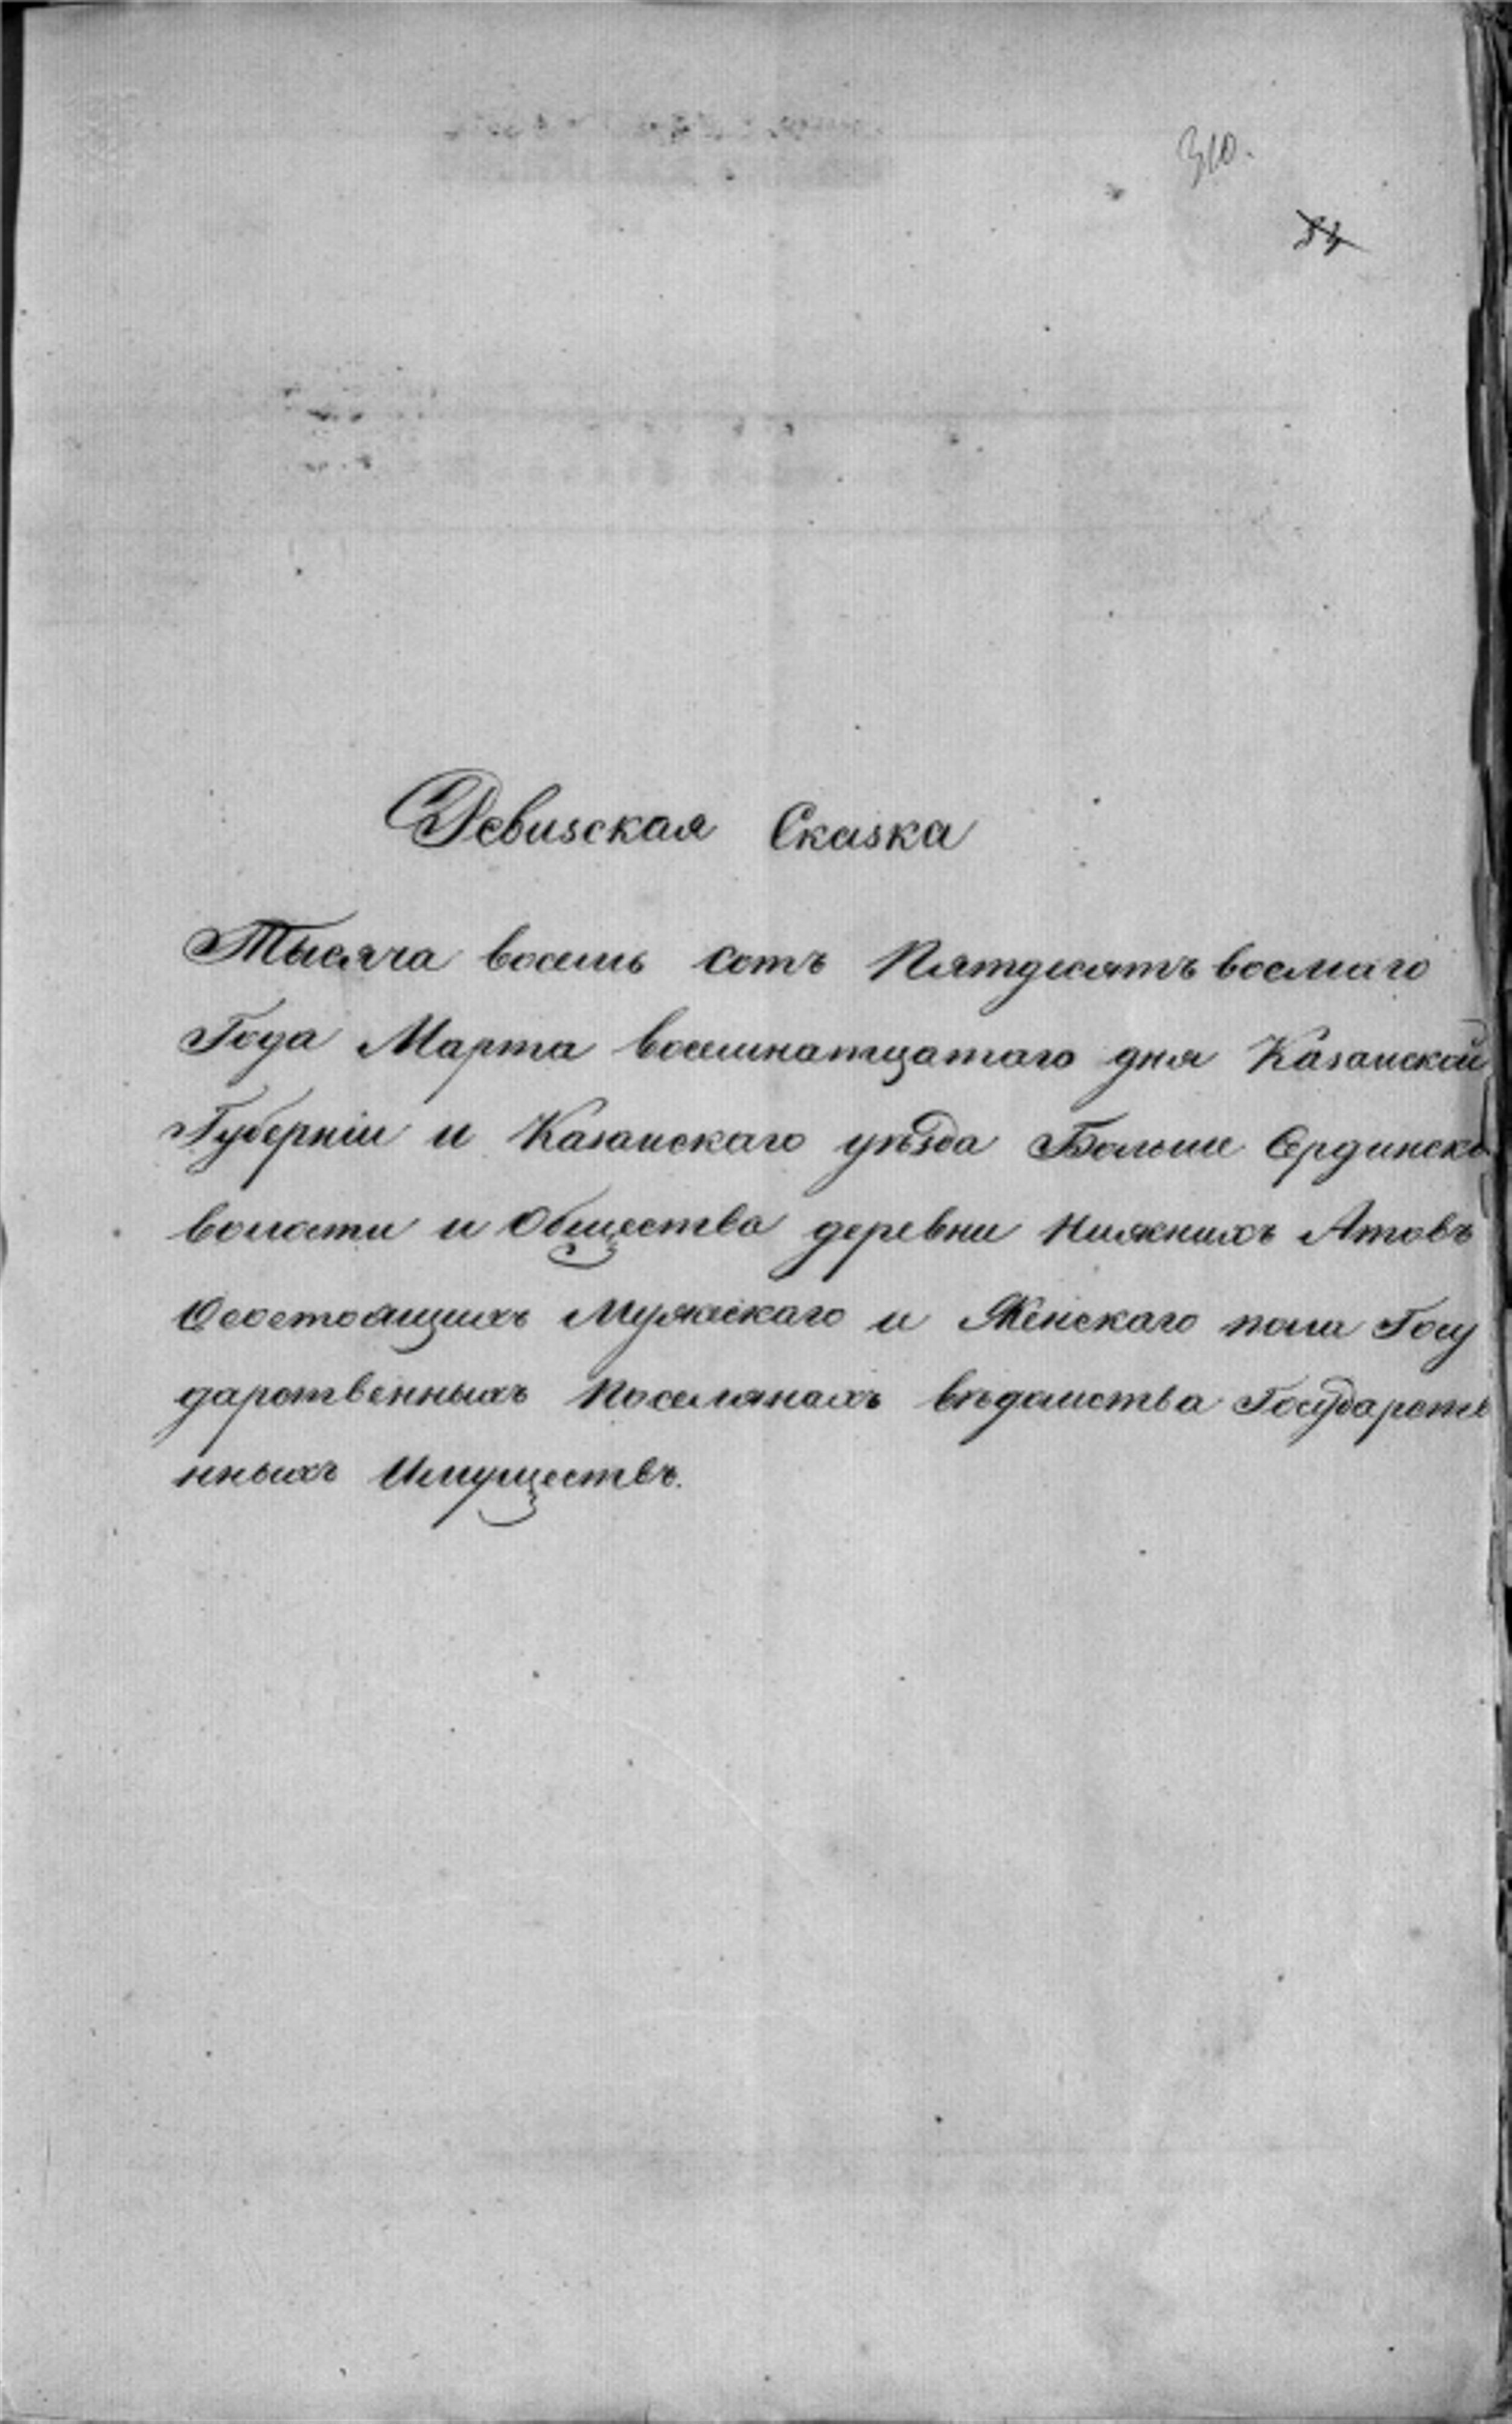 310.
Ревизская Сказка
Тысяча восемь сотъ Пятдесятъ восмаго
Года Марта восемнатцатаго дня Казанской
Губерніи и Казанскаго уѣзда Больше Ердинско
волости и Общества деревни Нижнихъ Атовъ
О состоящихъ Мужескаго и Женскаго пола Госу
дарственныхъ Поселянахъ вѣдомства Государстве
нныхъ Имуществъ.